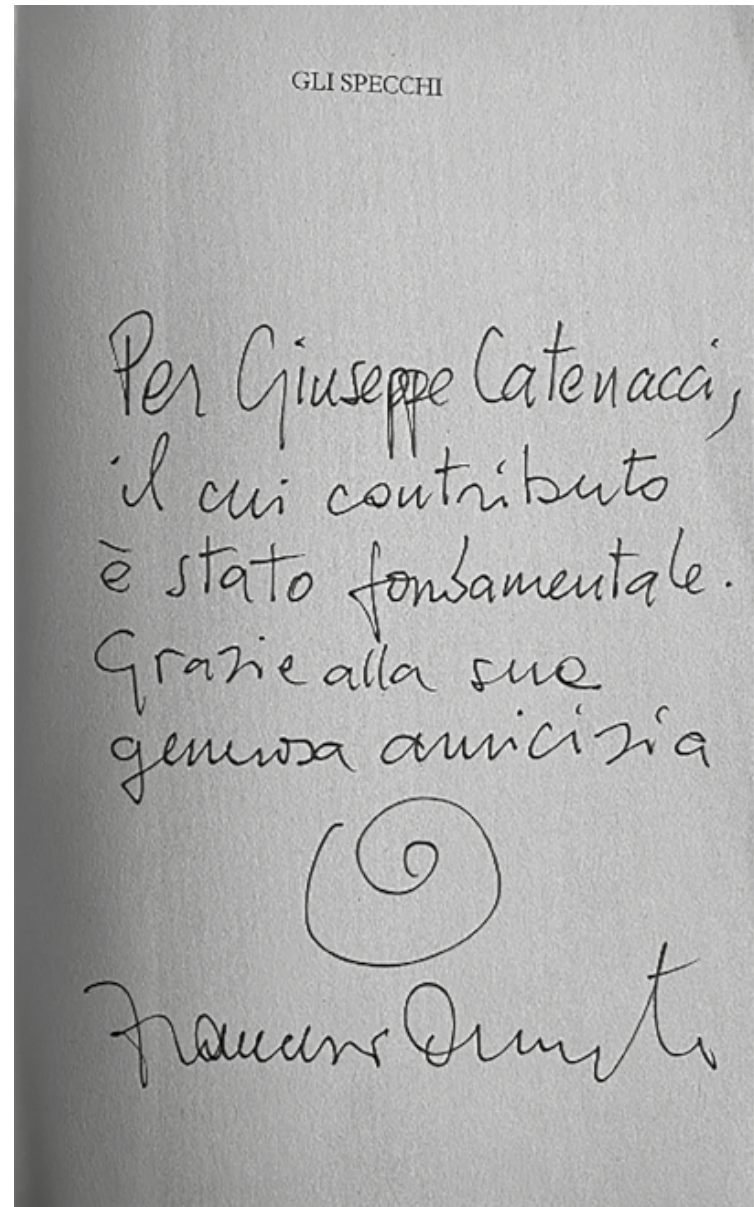 GLI SPECCHI
Per Giuseppe Catenacci,
il cui contributo
è stato fondamentale.
Grazie alla sua
generosa amicizia
Francesco